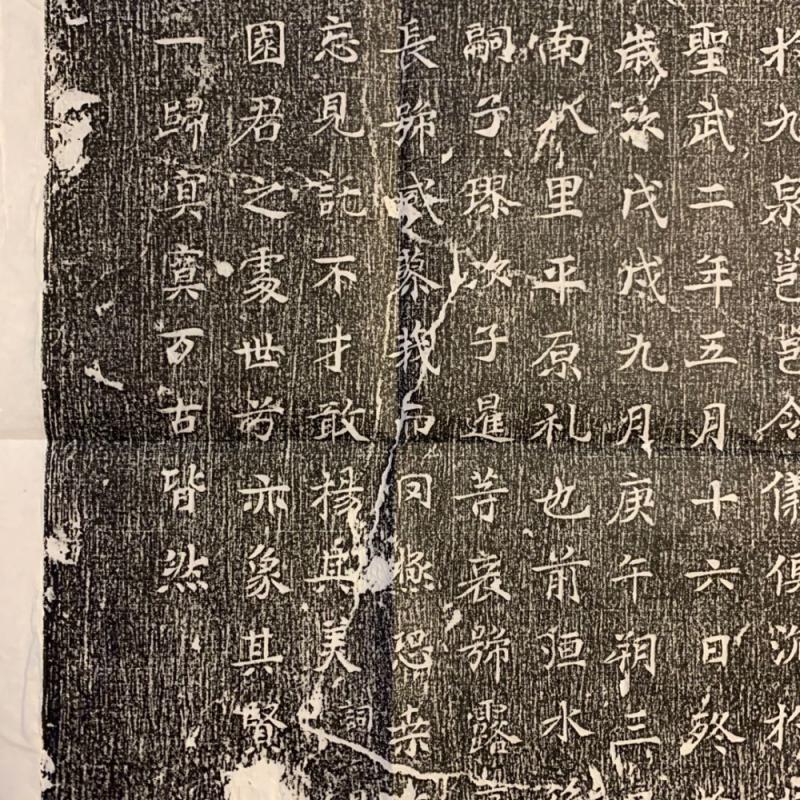 扵九泉邕邕令儀俱沉扵
聖武二年五月十六日終
歲次戊戌九月庚午朔三
南八里平原礼也前洹水
嗣子璆次子暹等哀號露
長號感蓼莪而罔極恐桒
忘見託不才敢揚其美詞
園君之處世兮亦象其賢
一歸冥寞万古皆然